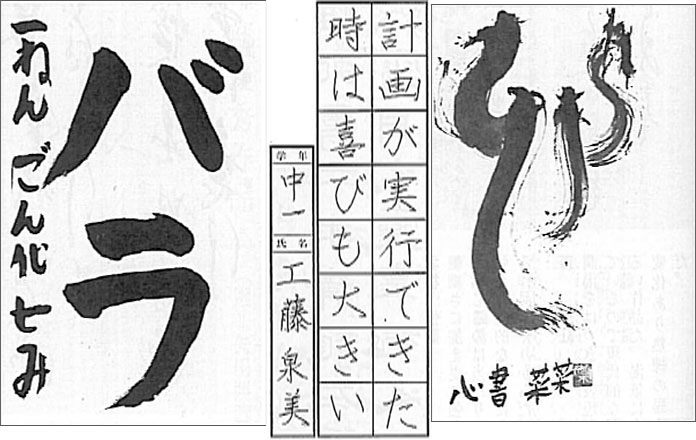 バラ
一ねん
計画が実行できた
時は喜びも大きい
学年 中一
氏名 工藤泉美
心書